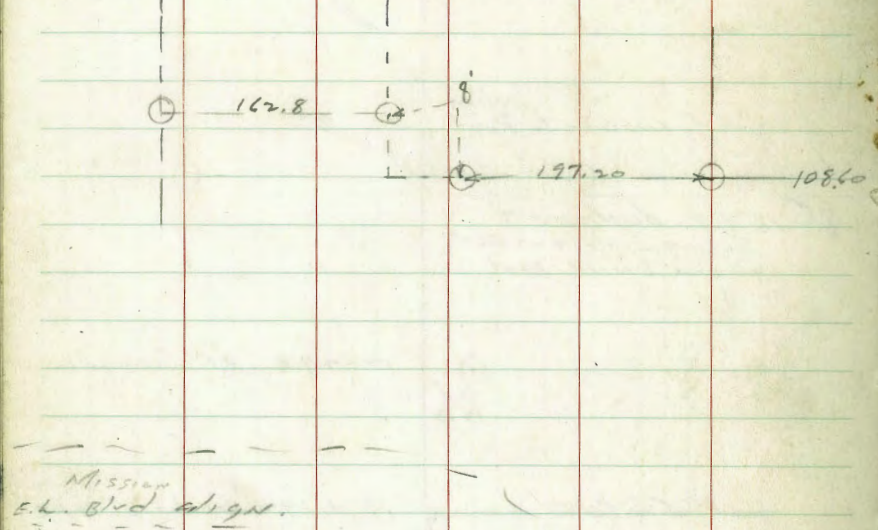 8'
162.8
197.20 108.60
Mission
E.L. Blvd align.